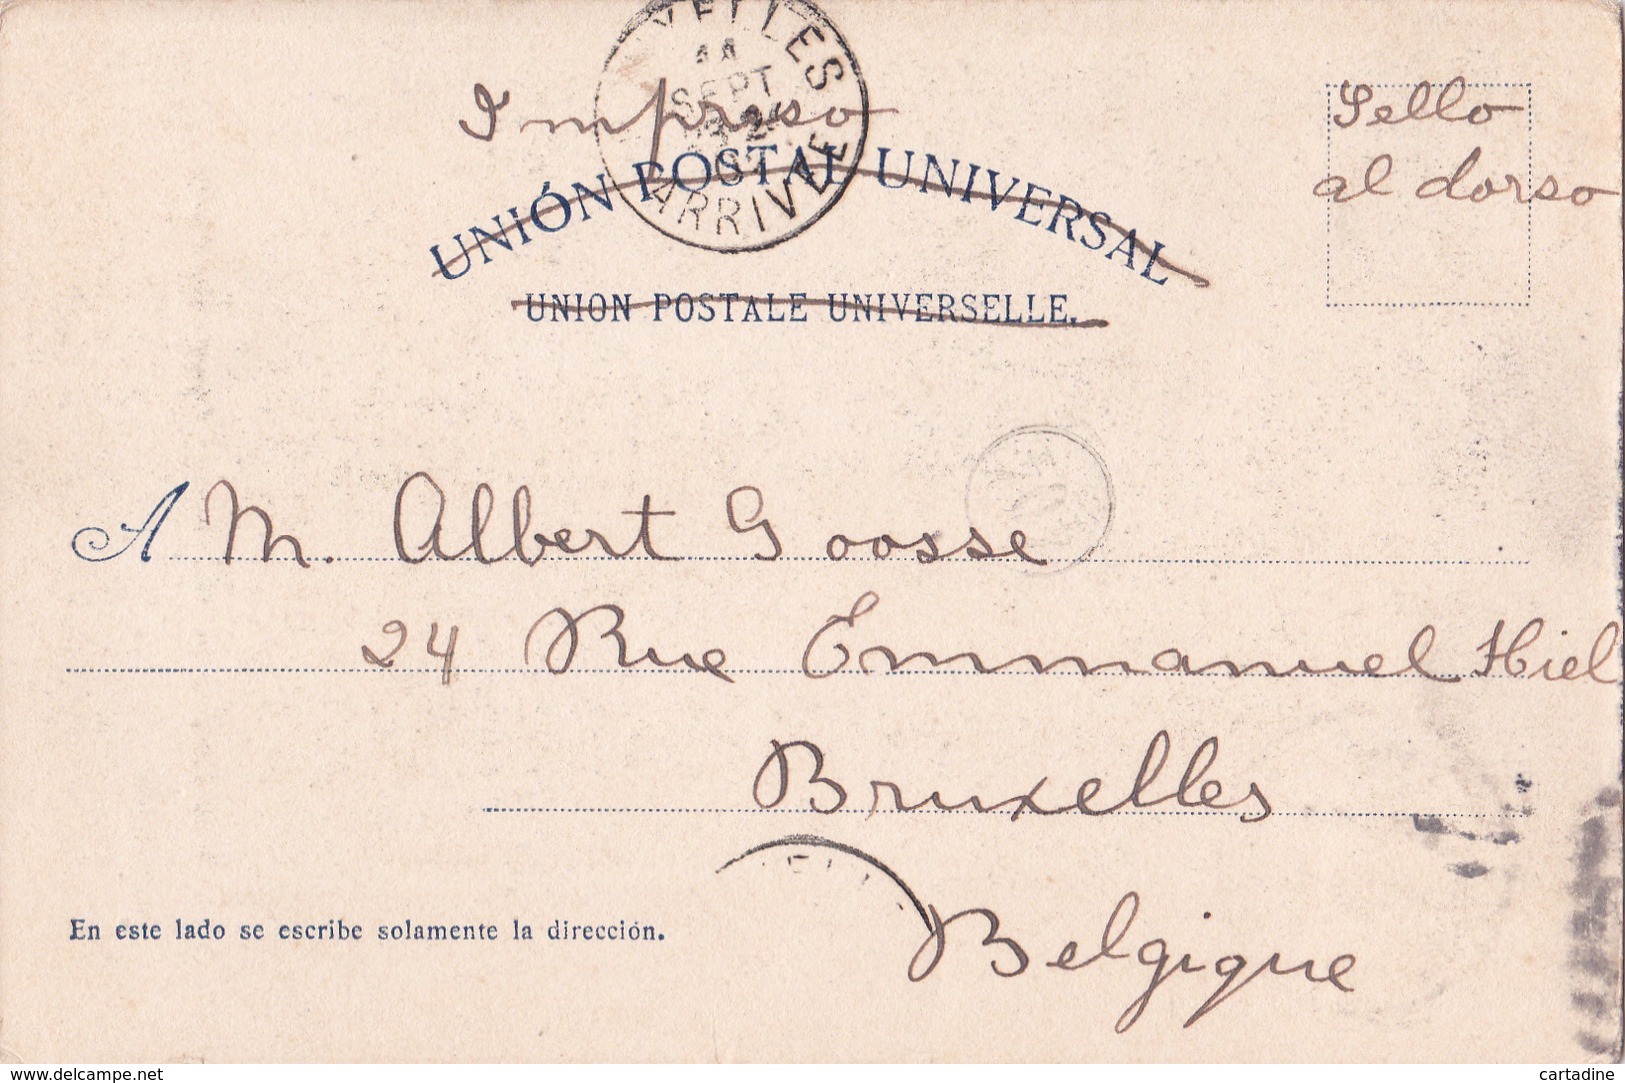 Impreso
UXELLES
SEPT
ARRIVÉE
Sello
al dorso
UNIÓN POSTAL UNIVERSAL
UNION POSTALE UNIVERSELLE.
A M. Albert Goosse
24 Rue Emmanuel Hiel
Bruxelles
Belgique
En este lado se escribe solamente la dirección.
www.delcampe.net
cartadine